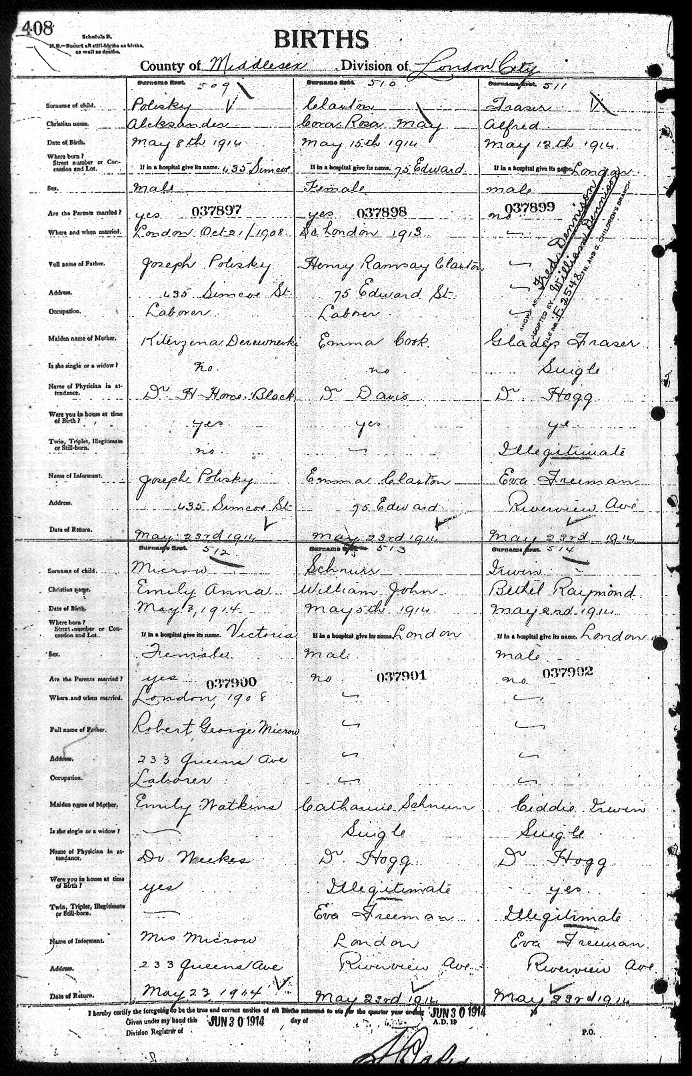 408
Schedule B.
N.B.—Record all still-births as births, as well as deaths.
BIRTHS
County of Middlesex Division of London City
Surname first. 509
Surname first. 510
Surname first. 511
Surname of child. Polisky Claxton Fraser
Christian name. Aleksander Cora Rosa May Alfred
Date of Birth. May 8th 1914 May 15th 1914 May 12th 1914
Where born? Street number or Concession and Lot. If in a hospital give its name. 435 Simcoe If in a hospital give its name. 75 Edward If in a hospital give its name. London
Sex. Male Female male
Are the Parents married? yes 037897 yes 037898 no 037899
Where and when married. London Oct 21/1908 London 1913
Full name of Father. Joseph Polisky Henry Ramsay Claxton
Address. 435 Simcoe St. 75 Edward St.
Occupation. Laborer Laborer
Fred Dennison
ADOPTED BY William Dennison
F. 2548
CHILDREN'S BRANCH
Maiden name of Mother. Emma Cook Gladys Fraser
Is she single or a widow? no no Single
Name of Physician in attendance. Dr H. Black Dr Davis Dr Hogg
Were you in house at time of Birth? yes yes ye
Twin, Triplet, Illegitimate or Still-born. no Illegitimate
Name of Informant. Joseph Polisky Emma Claxton Eva Freeman
Address. 435 Simcoe St 75 Edward Riverview Ave
Date of Return. May 23rd 1914 May 23rd 1914 May 23rd 1914
Surname first. 512
Surname first. 513
Surname first. 514
Surname of child. Microw Schnurr Irwin
Christian name. Emily Anna William John Bethel Raymond
Date of Birth. May 1914 May 5th 1914 May 2nd 1914
Where born? Street number or Concession and Lot. If in a hospital give its name. Victoria If in a hospital give its name. London If in a hospital give its name. London
Sex. Female Male male
Are the Parents married? yes 037900 no 037901 no 037902
Where and when married. London, 1908
Full name of Father. Robert George Microw
Address. 233 Queens Ave
Occupation. Laborer
Maiden name of Mother. Emily Watkins Catharine Schnurr Irwin
Is she single or a widow? Single Single
Name of Physician in attendance. Dr Weekes Dr Hogg Dr Hogg
Were you in house at time of Birth? yes Illegitimate yes
Twin, Triplet, Illegitimate or Still-born. Eva Freeman Illegitimate
Name of Informant. Mrs Microw London Eva Freeman
Address. 233 Queens Ave Riverview Ave Riverview Ave
Date of Return. May 23, 1914 May 23rd 1914 May 23rd 1914
I hereby certify the foregoing to be the true and correct entries of all Births returned to me for the quarter year ending JUN 30 1914
Given under my hand this JUN 30 1914 day of A.D. 19
Division Registrar of P.O.